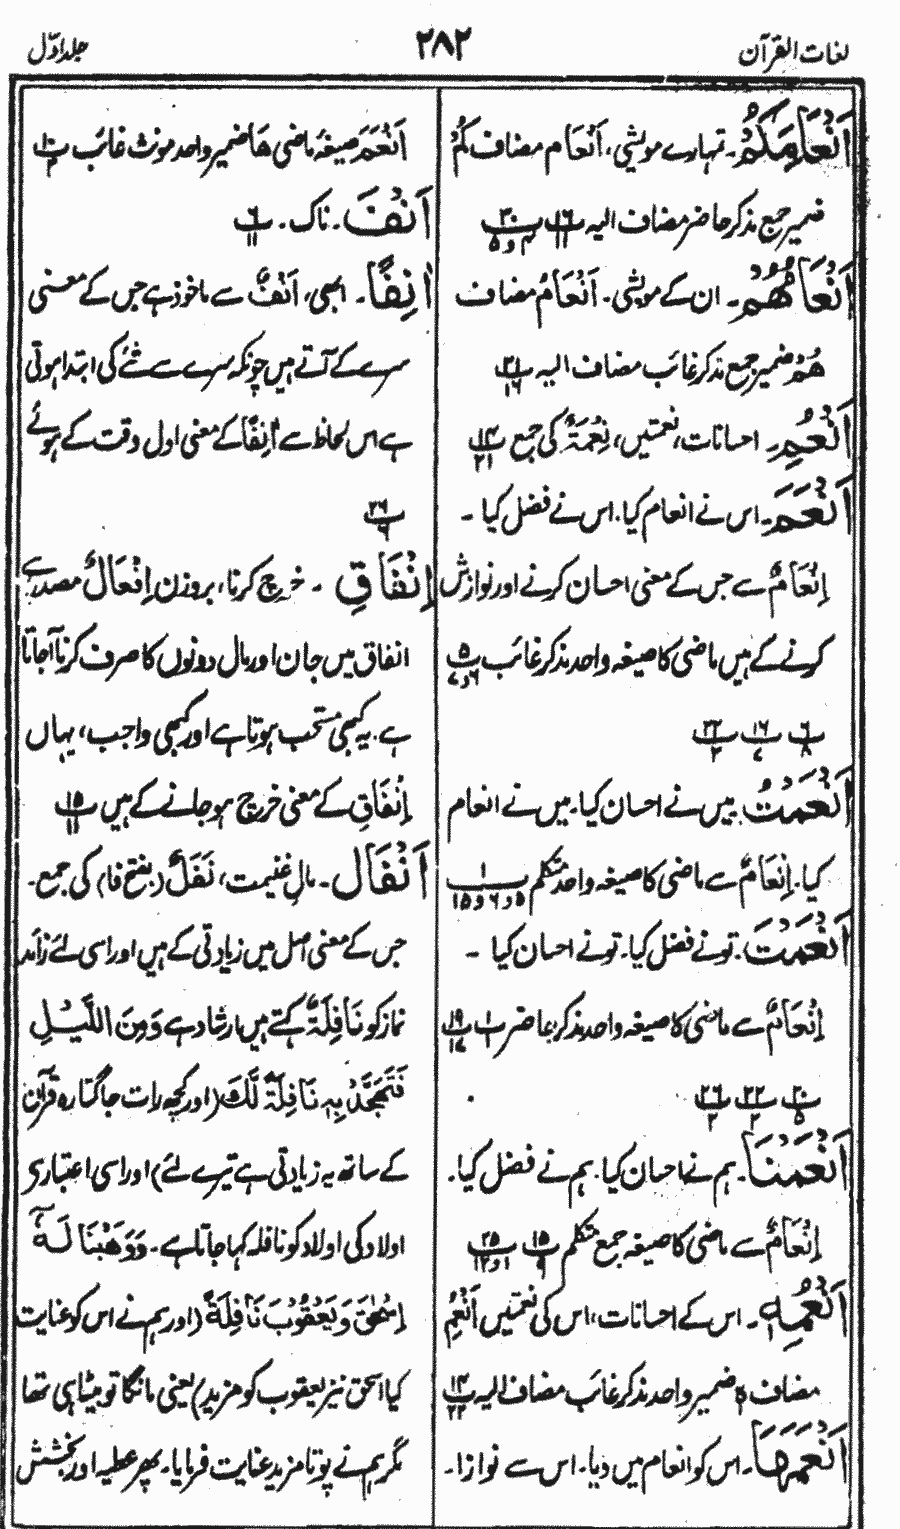 لغات القرآن
۲۸۲
جلد اوّل
اَنْعَامِكُمْ۔ تمہارے مویشی، اَنْعَام مضاف كُمْ
ضمیر جمع مذکر حاضر مضاف الیہ
اَنْعَامُهُمْ۔ ان کے مویشی۔ اَنْعَامُ مضاف
هُمْ ضمیر جمع مذکر غائب مضاف الیہ
اَنْعُمِ۔ احسانات، نعمتیں، نِعْمَةٌ کی جمع
اَنْعَمَ۔ اس نے انعام کیا۔ اس نے فضل کیا۔
اِنْعَامٌ سے جس کے معنی احسان کرنے اور نوازش
کرنے کے ہیں ماضی کا صیغہ واحد مذکر غائب
اَنْعَمْتُ۔ میں نے احسان کیا۔ میں نے انعام
کیا۔ اِنْعَامٌ سے ماضی کا صیغہ واحد متکلم
اَنْعَمْتَ۔ تو نے فضل کیا۔ تو نے احسان کیا۔
اِنْعَامٌ سے ماضی کا صیغہ واحد مذکر حاضر
اَنْعَمْنَا۔ ہم نے احسان کیا۔ ہم نے فضل کیا۔
اِنْعَامٌ سے ماضی کا صیغہ جمع متکلم
اَنْعُمِهٖ۔ اس کے احسانات، اس کی نعمتیں اَنْعُمِ
مضاف ہٖ ضمیر واحد مذکر غائب مضاف الیہ
اَنْعَمَهَا۔ اس کو انعام میں دیا۔ اس سے نوازا۔
اَنْعَمَ صیغہ ماضی هَا ضمیر واحد مونث غائب
اَنْفَ۔ ناک۔
اٰنِفًا۔ ابھی، اَنْفٌ سے ماخوذ ہے جس کے معنی
سرے کے آتے ہیں چونکہ سرے سے شئے کی ابتدا ہوتی
ہے اس لحاظ سے اٰنِفًا کے معنی اول وقت کے ہوئے
اِنْفَاقِ۔ خرچ کرنا، بروزن اِفْعَالٌ مصدر ہے
انفاق میں جان اور مال دونوں کا صرف کرنا آجاتا
ہے۔ یہ کبھی مستحب ہوتا ہے اور کبھی واجب، یہاں
اِنْفَاقِ کے معنی خرچ ہو جانے کے ہیں
اَنْفَال۔ مالِ غنیمت، نَفَلٌ (بفتح فا) کی جمع۔
جس کے معنی اصل میں زیادتی کے ہیں اور اسی لئے زائد
نماز کو نَافِلَةٌ کہتے ہیں ارشاد ہے وَمِنَ اللَّيْلِ
فَتَهَجَّدْ بِهٖ نَافِلَةً لَّكَ (اور کچھ رات جاگتا رہ قرآن
کے ساتھ یہ زیادتی ہے تیرے لئے) اور اسی اعتباری
اولاد کی اولاد کو نافلہ کہا جاتا ہے۔ وَوَهَبْنَا لَهٗٓ
اِسْحٰقَ وَيَعْقُوْبَ نَافِلَةً (اور ہم نے اس کو عنایت
کیا اسحٰق نیز یعقوب کو مزید) یعنی مانگا تو بیٹا ہی تھا
مگر ہم نے پوتا مزید عنایت فرمایا۔ پھر عطیہ اور بخشش